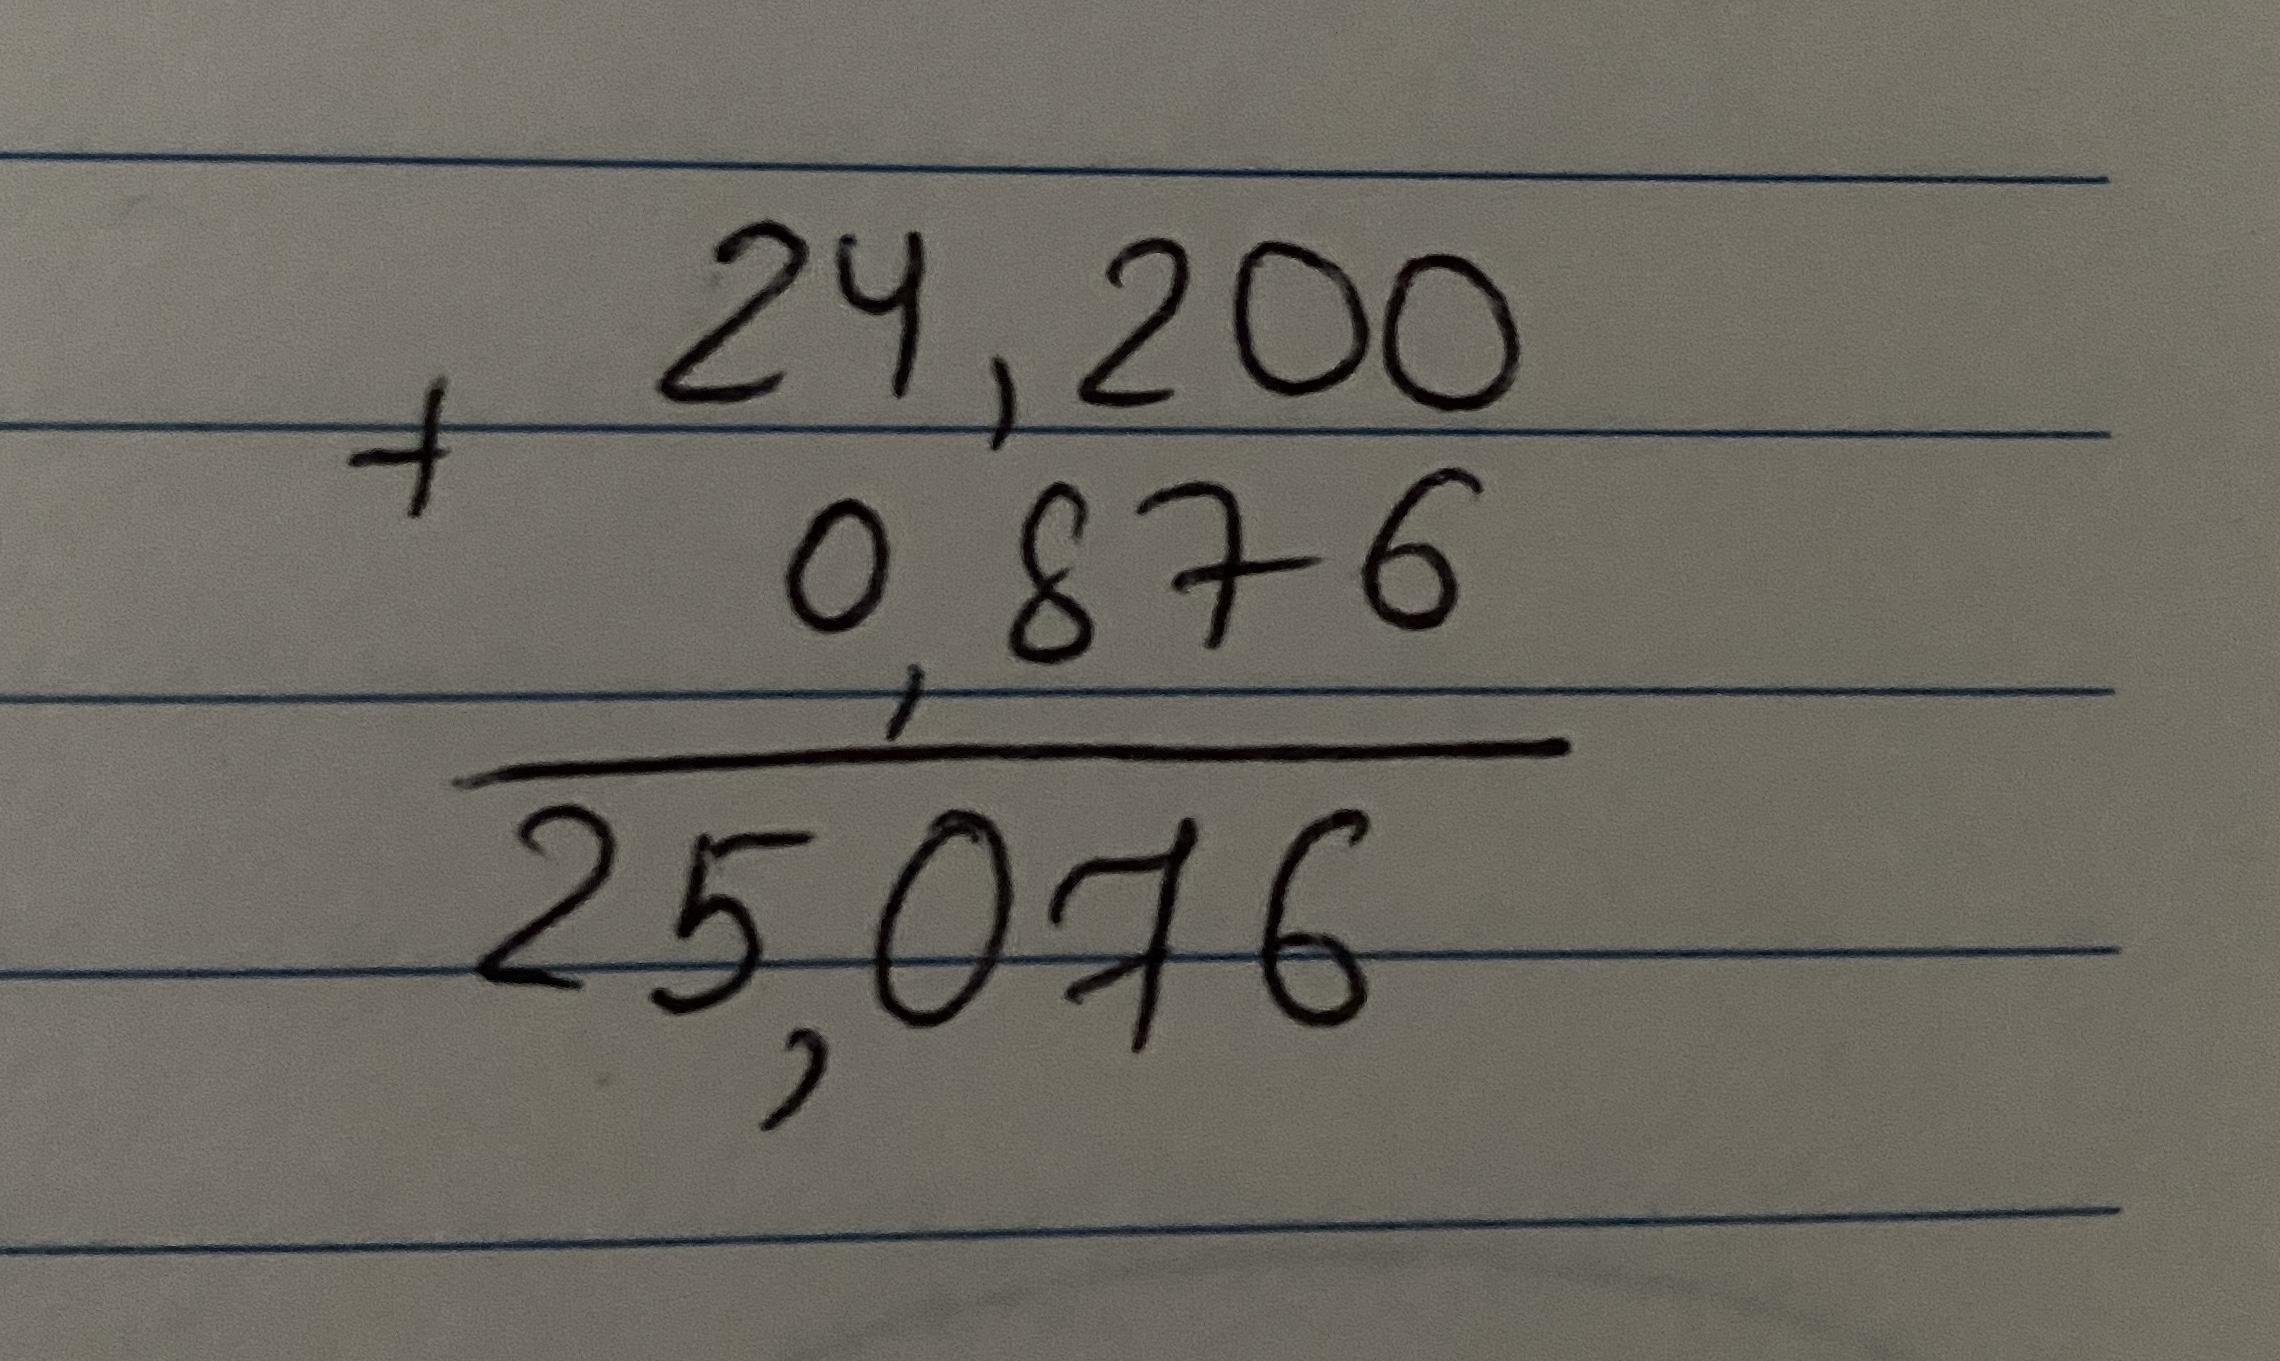 24,200
+
0,876
25,076